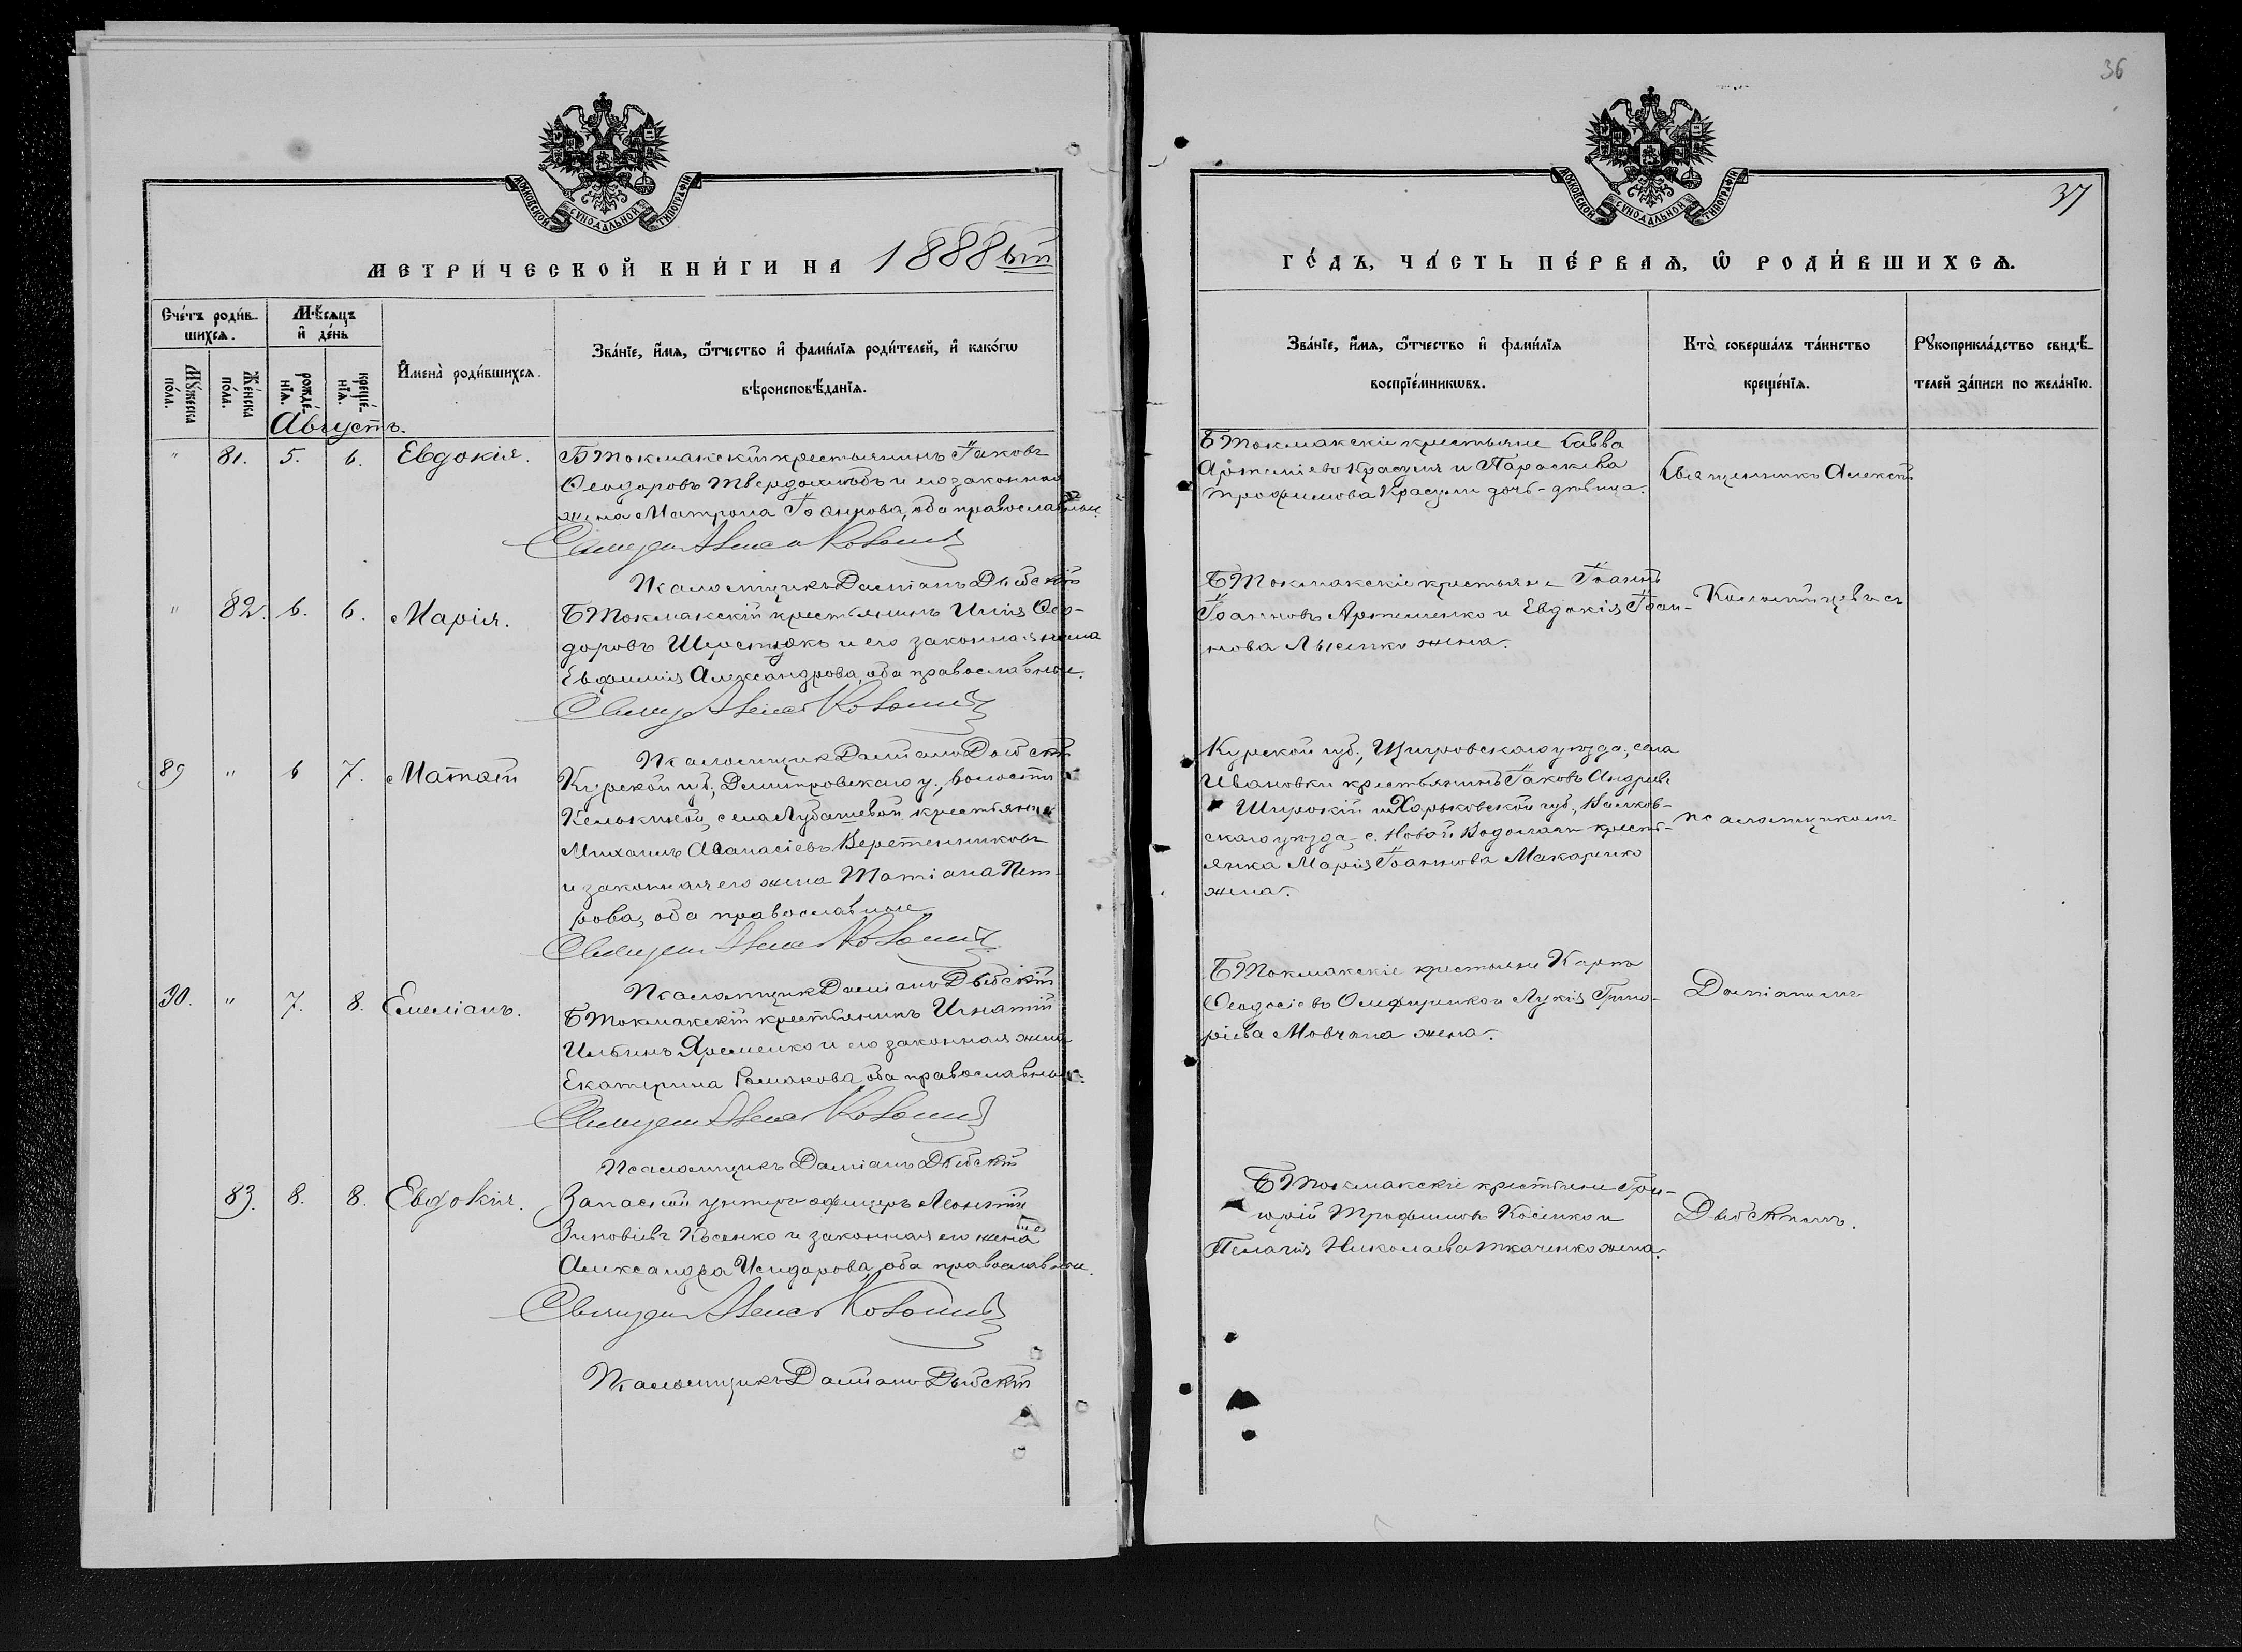 36
МОСКОВСКОЙ СУНОДАЛЬНОЙ ТИПОГРАФІИ
МЕТРИ́ЧЕСКОЙ КНИ́ГИ НА 1888ый
Сче́тъ роди́в-
шихсѧ.
Мѣ́сѧцъ
и҆ де́нь
Мꙋ́жеска
по́ла.
Же́нска
по́ла.
рожде́-
нїѧ.
креще́-
нїѧ.
И҆мена̀ роди́вшихсѧ.
Зва́нїе, и҆́мѧ, ѻ҆́тчество и҆ фами́лїѧ роди́телей, и҆ како́гѡ
вѣроисповѣ́данїѧ.
Августъ.
" 81. 5. 6. Евдокія.
БТокмакскій крестьянинъ Іаковъ
Ѳеодоровъ Твердохлѣбъ и его законная
жена Матрона Іоаннова, оба православные.
Псаломщикъ Даміанъ
" 82. 6. 6. Марія.
БТокмакскій крестьянинъ Илія Ѳео-
доровъ Шерстюкъ и его законная жена
Евфимія Александрова, оба православные.
Псаломщикъ Даміанъ
89 " 6 7. Матѳій
Курской губ., Дмитровскаго у., волости
села крестьянинъ
Михаилъ Аѳанасіевъ Веретенниковъ
и законная его жена Татіана Пет-
рова, оба православные
Псаломщикъ Даміанъ
30. " 7. 8. Емеліанъ.
БТокмакскій крестьянинъ Игнатій
Ильинъ Яременко и его законная жена
Екатерина Романова, оба православные.
Псаломщикъ Даміанъ
83. 8. 8. Евдокія.
Запасной унтеръ офицеръ Леонтій
Зиновіевъ Косенко и законная его жена
Александра Исидорова, оба православные.
Псаломщикъ Даміанъ
МОСКОВСКОЙ СУНОДАЛЬНОЙ ТИПОГРАФІИ
37
ГО́ДЪ, ЧА́СТЬ ПЕ́РВАѦ, Ѡ҆ РОДИ́ВШИХСѦ.
Зва́нїе, и҆́мѧ, ѻ҆́тчество и҆ фами́лїѧ
воспрїе́мникѡвъ.
Кто̀ соверша́лъ та́инство
креще́нїѧ.
Рꙋкоприкла́дство свидѣ́-
телей за́писи по жела́нїю.
БТокмакскіе крестьяне Савва
Артеміевъ Красуля и Параскева
Трофимова Красули дочь-дѣвица.
Священникъ Алексѣй
БТокмакскіе крестьяне Іоаннъ
Іоанновъ Артеменко и Евдокія Іоан-
нова Лысенко жена.
Коломійцевъ съ
Курской губ., Щигровскаго уѣзда, села
Ивановки крестьянинъ Іаковъ Андреевъ
Широкій и Харьковской губ., Валков-
скаго уѣзда, с. Новой Водолаги кресть-
янка Марія Іоаннова Макаренко
жена.
псаломщикомъ
БТокмакскіе крестьяне Карпъ
Ѳеодосіевъ и Лукія Григо-
ріева Мовчана жена.
Даміаномъ
БТокмакскіе крестьяне Гри-
горій Трофимовъ Косенко и
Пелагія Николаева Ткаченко жена.